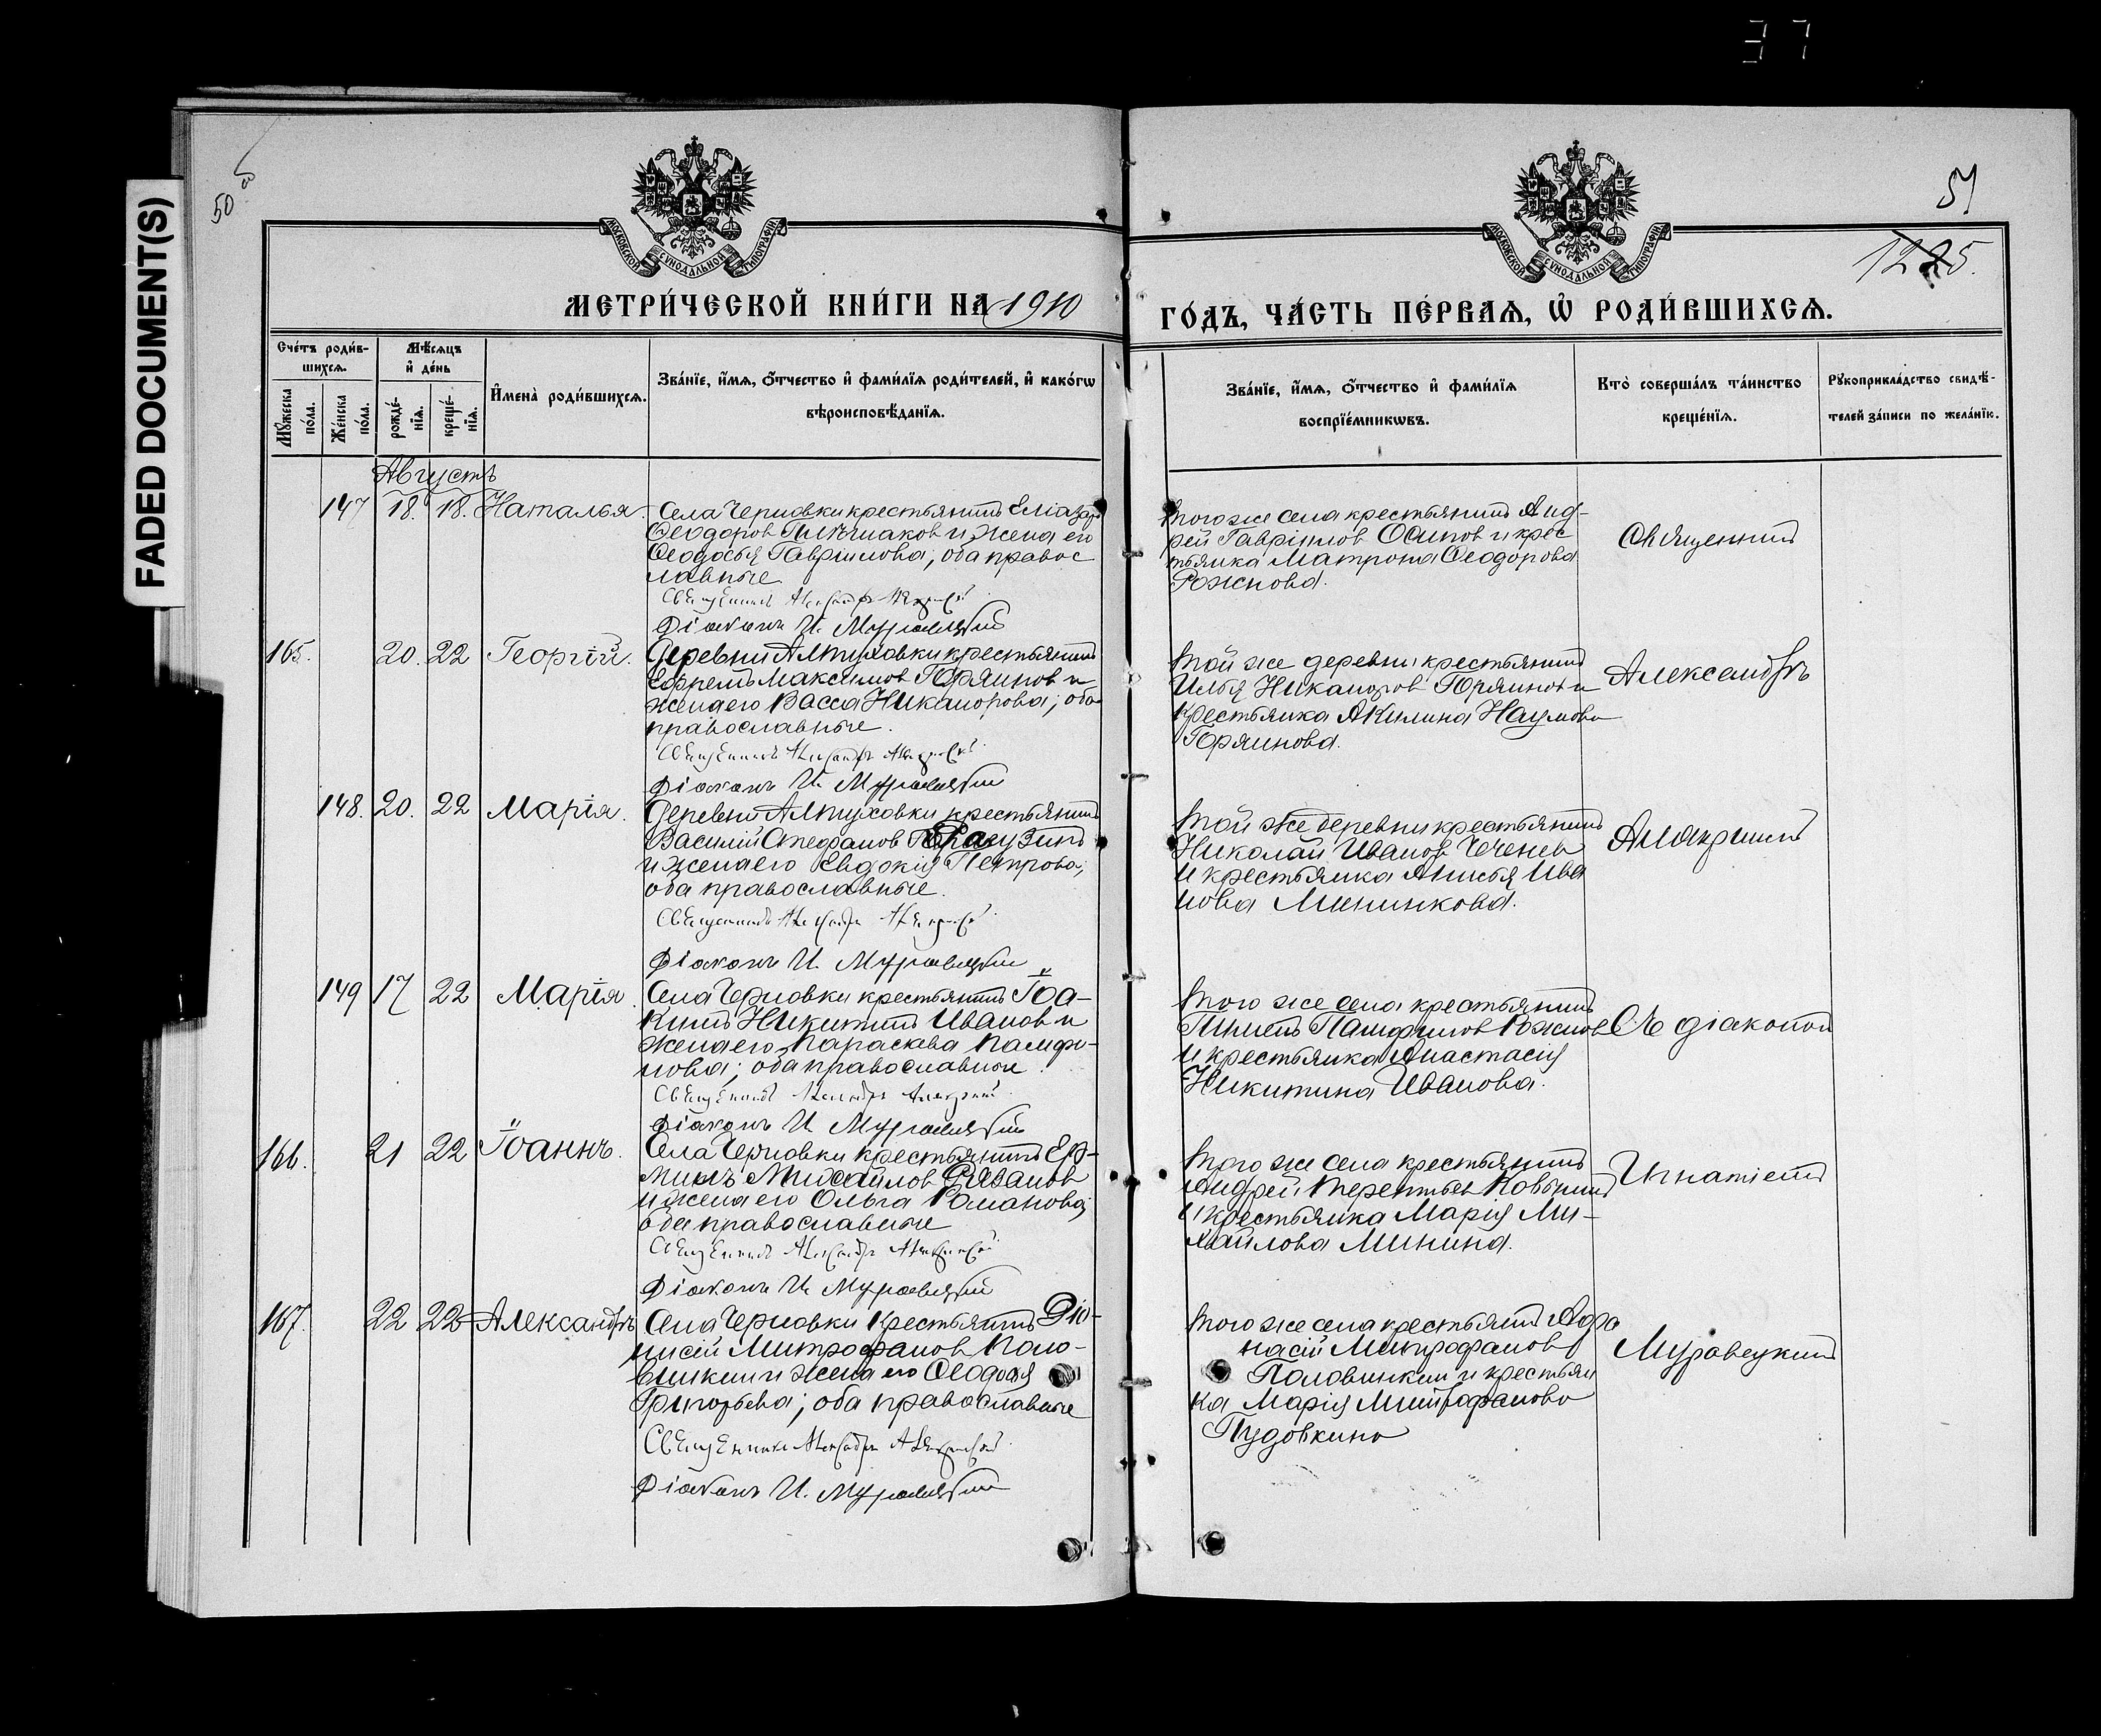 37
FADED DOCUMENT(S)
50
51
1225.
МОСКОВСКОЙ СѴНОДАЛЬНОЙ ТИПОГРАФІИ
МОСКОВСКОЙ СѴНОДАЛЬНОЙ ТИПОГРАФІИ
МЕТРИ́ЧЕСКОЙ КНИ́ГИ НА 1910
ГО́ДЪ, ЧА́СТЬ ПЕ́РВАѦ, Ѡ҆ РОДИ́ВШИХСѦ.
Сче́тъ роди́в-
шихсѧ.
Мꙋ́жеска
по́ла.
Же́нска
по́ла.
Мѣ́сѧцъ
и҆ де́нь
рожде́-
нїѧ.
креще́-
нїѧ.
И҆мена̀ роди́вшихсѧ.
Зва́нїе, и҆́мѧ, ѻ҆́тчество и҆ фами́лїѧ роди́телей, и҆ како́гѡ
вѣроисповѣ́данїѧ.
Зва́нїе, и҆́мѧ, ѻ҆́тчество и҆ фами́лїѧ
воспрїе́мникѡвъ.
Кто̀ соверша́лъ та́инство
креще́нїѧ.
Рꙋкоприкла́дство свидѣ́-
телей за́писи по жела́нїю.
Августъ
147 18. 18. Наталья. Села Черновки крестьянинъ Елiазаръ
Ѳеодоров и жена его
Ѳеодосья Гаврiилова, оба правос
лавные.
Священникъ Александръ
Дiаконъ И. Муравецкий
Того же села крестьянинъ Анд-
рей Гаврiилов Осипов и крес
тьянка Матрона Ѳеодорова
Рожнова.
Священникъ
165. 20. 22 Георгiй. Деревни Алтуховки крестьянинъ
Ефремъ Максимов Горяинов и
жена его Васса Никанорова; оба
православные.
Священникъ Александръ
Дiаконъ И. Муравецкий
Той же деревни крестьянинъ
Илья Никаноров Горяинов и
крестьянка Акилина Наумова
Горяинова.
Александръ
148. 20. 22 Марiя. Деревни Алтуховки крестьянинъ
Василiй Стефанов
и жена его Евдокiя Петрова;
оба православные.
Священникъ Александръ
Дiаконъ И. Муравецкий
Той же деревни крестьянинъ
Николай Иванов
и крестьянка Анисья Ива
нова Мининкова.
149 17 22 Марiя. Села Черновки крестьянинъ Iоа-
кимъ Никитинъ Иванов и
жена его Параскева Памфи-
лова; оба православные.
Священникъ Александръ
Дiаконъ И. Муравецкий
Того же села крестьянинъ
Пименъ Памфилов Рожнов
и крестьянка Анастасiя
Никитина Иванова.
Съ дiакономъ
166. 21 22 Iоаннъ. Села Черновки крестьянинъ Ер-
милъ Михайлов
и жена его Ольга Романова;
оба православные
Священникъ Александръ
Дiаконъ И. Муравецкий
Того же села крестьянинъ
Андрей Терентьев
и крестьянка Марiя Ми-
хайлова Минина.
Игнатiемъ
167. 22 22 Александръ Села Черновки крестьянинъ Дiо-
нисiй Митрофанов Поло-
винкин и жена его
Григорьева; оба православные
Священникъ Александръ
Дiаконъ И. Муравецкий
Того же села крестьянинъ Афа
насiй Митрофанов
Половинкин и крестьян
ка Марiя Митрофанова
Пудовкина
Муравецкимъ